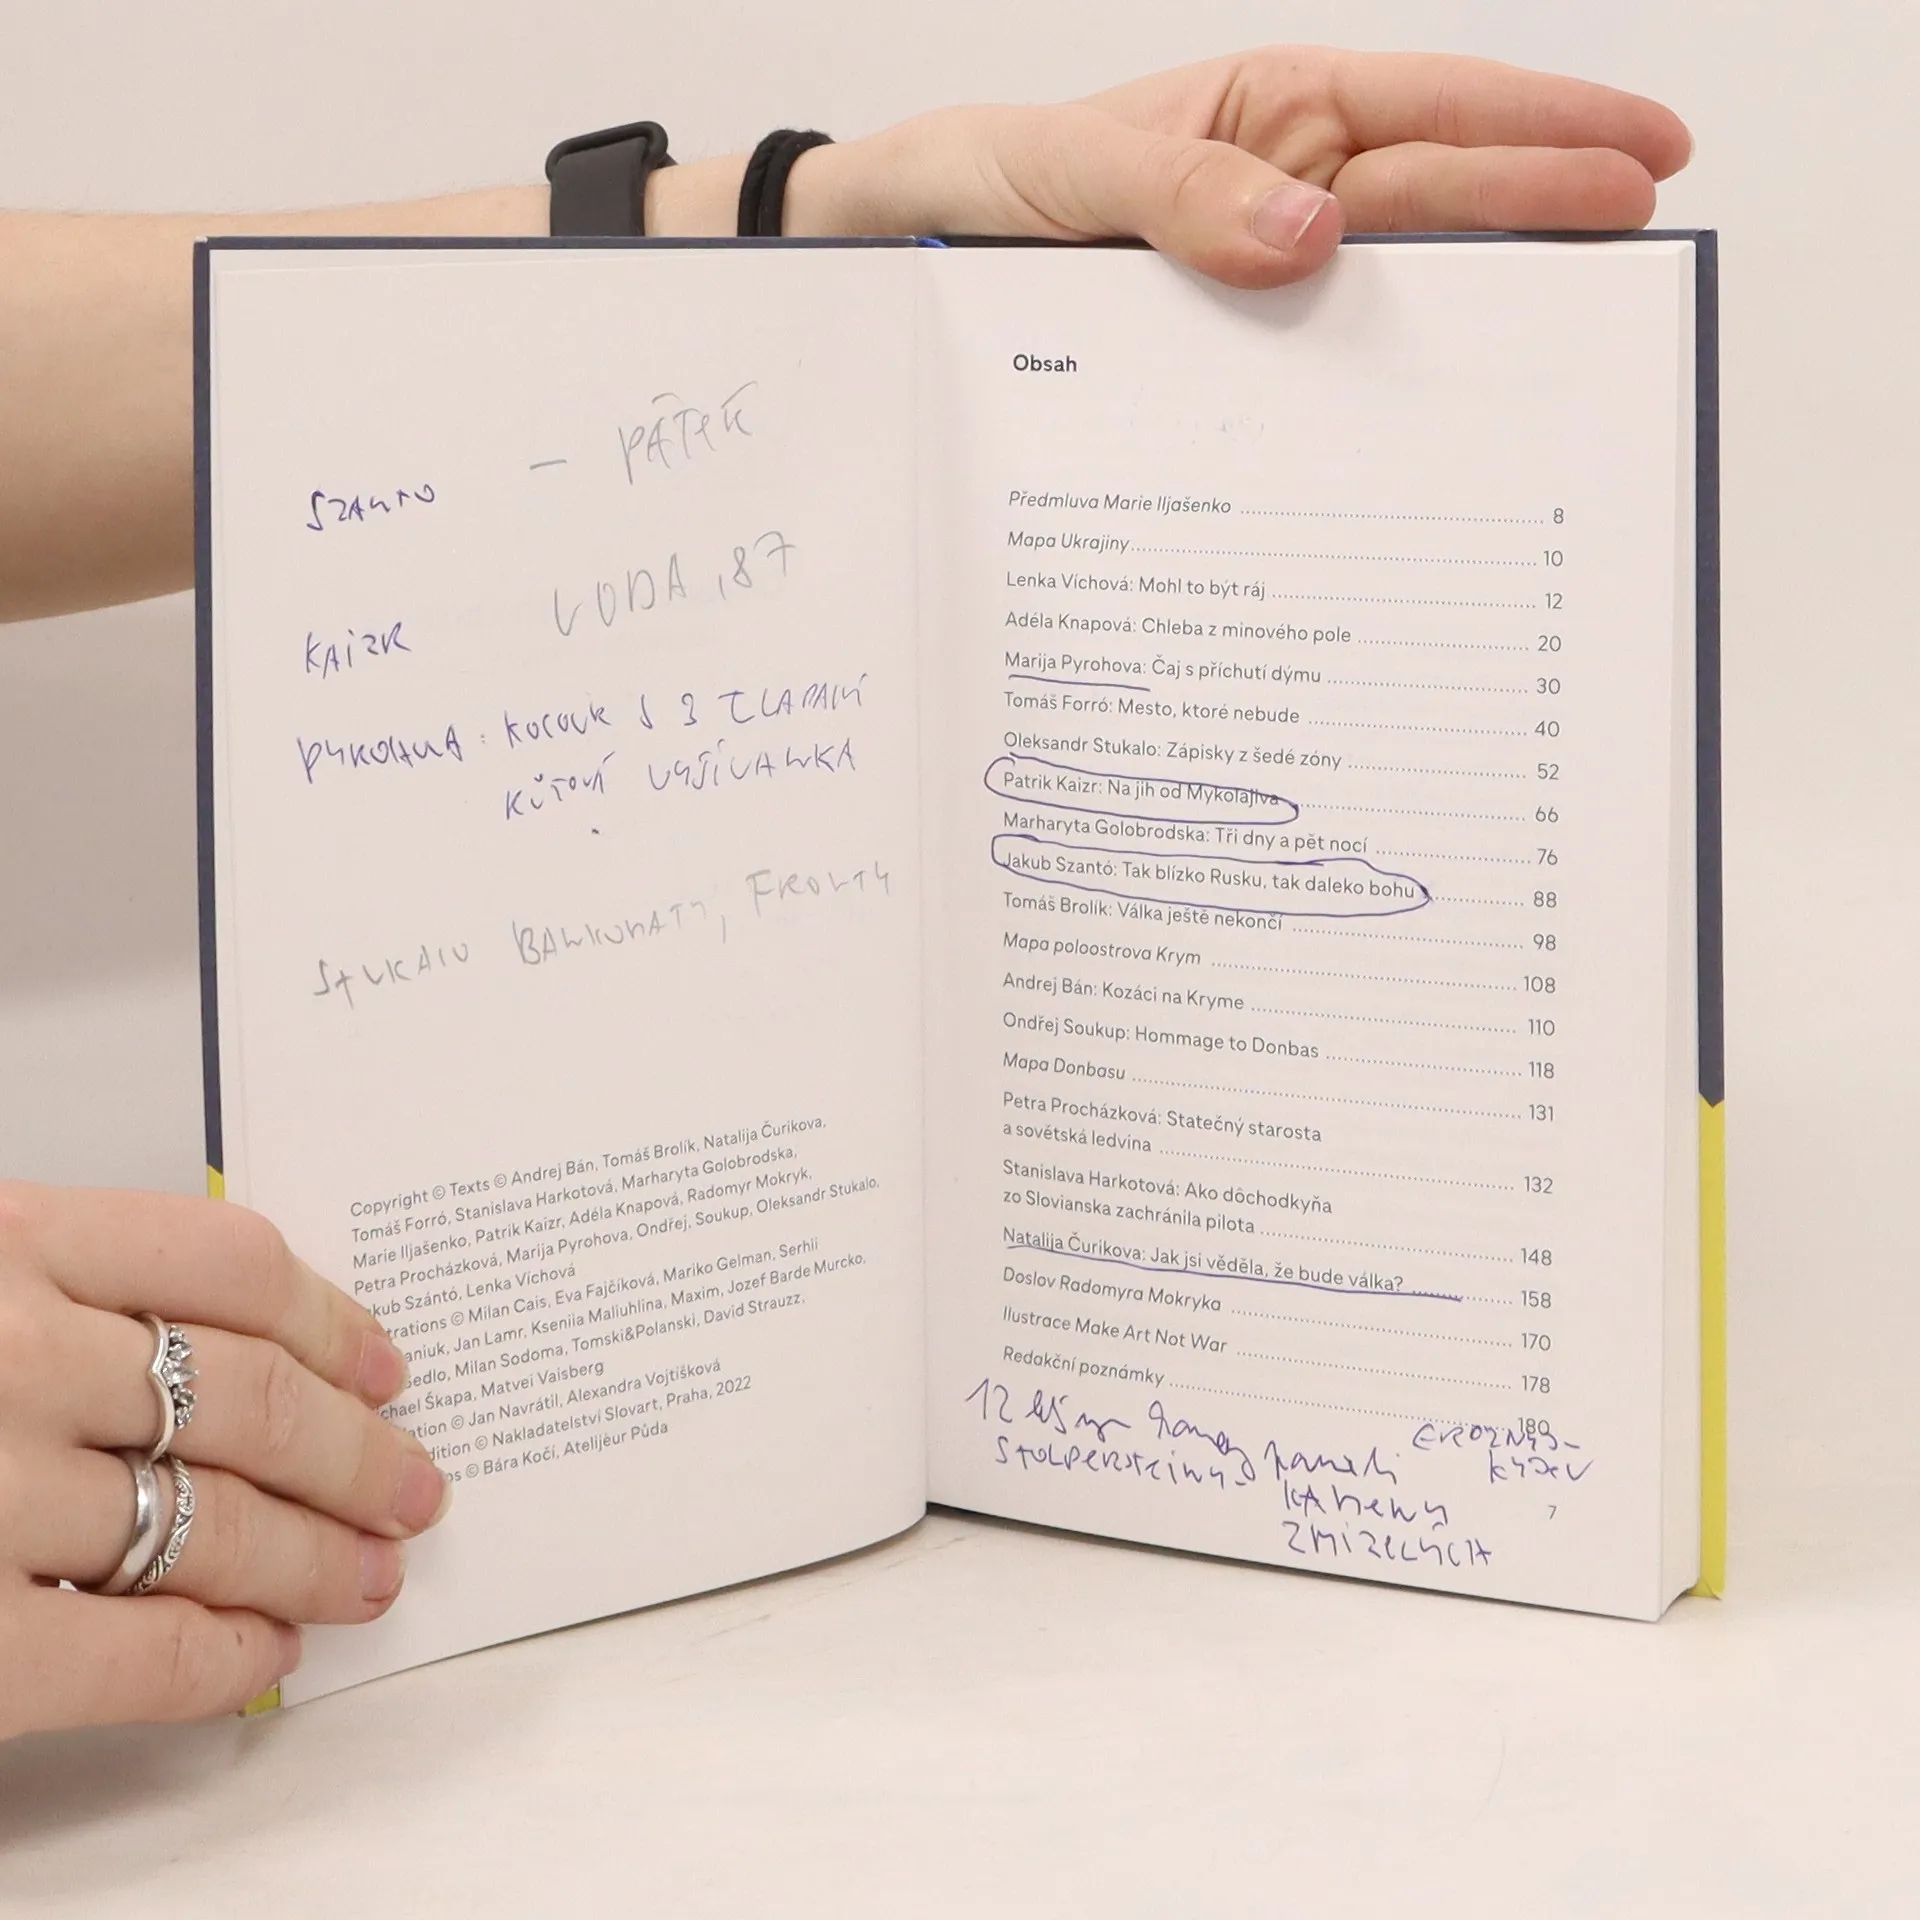 SZANTO – PÁTEK
KAIZR VODA, 87
PYROHOVA: KOCOUR S 3 TLAPAMI
KŮTOVÍ VYŠÍVANKA
STUKALO BANKOMATY, FRONTY
Copyright © Texts © Andrej Bán, Tomáš Brolík, Natalija Čurikova,
Tomáš Forró, Stanislava Harkotová, Marharyta Golobrodska,
Marie Iljašenko, Patrik Kaizr, Adéla Knapová, Radomyr Mokryk,
Petra Procházková, Marija Pyrohova, Ondřej, Soukup, Oleksandr Stukalo,
kub Szántó, Lenka Víchová
trations © Milan Cais, Eva Fajčíková, Mariko Gelman, Serhii
aniuk, Jan Lamr, Kseniia Maliuhlina, Maxim, Jozef Barde Murcko,
Sedlo, Milan Sodoma, Tomski&Polanski, David Strauzz,
chael Škapa, Matvei Vaisberg
ation © Jan Navrátil, Alexandra Vojtišková
dition © Nakladatelství Slovart, Praha, 2022
os © Bára Kočí, Atelijèur Půda
Obsah
Předmluva Marie Iljašenko 8
Mapa Ukrajiny 10
Lenka Víchová: Mohl to být ráj 12
Adéla Knapová: Chleba z minového pole 20
Marija Pyrohova: Čaj s příchutí dýmu 30
Tomáš Forró: Mesto, ktoré nebude 40
Oleksandr Stukalo: Zápisky z šedé zóny 52
Patrik Kaizr: Na jih od Mykolajiva 66
Marharyta Golobrodska: Tři dny a pět nocí 76
Jakub Szantó: Tak blízko Rusku, tak daleko bohu 88
Tomáš Brolík: Válka ještě nekončí 98
Mapa poloostrova Krym 108
Andrej Bán: Kozáci na Kryme 110
Ondřej Soukup: Hommage to Donbas 118
Mapa Donbasu 131
Petra Procházková: Statečný starosta
a sovětská ledvina 132
Stanislava Harkotová: Ako dôchodkyňa
zo Slovianska zachránila pilota 148
Natalija Čurikova: Jak jsi věděla, že bude válka? 158
Doslov Radomyra Mokryka 170
Ilustrace Make Art Not War 178
Redakční poznámky 180
12
STOLPERSTEINY-
KAMENY
ZMIZELÝCH
7